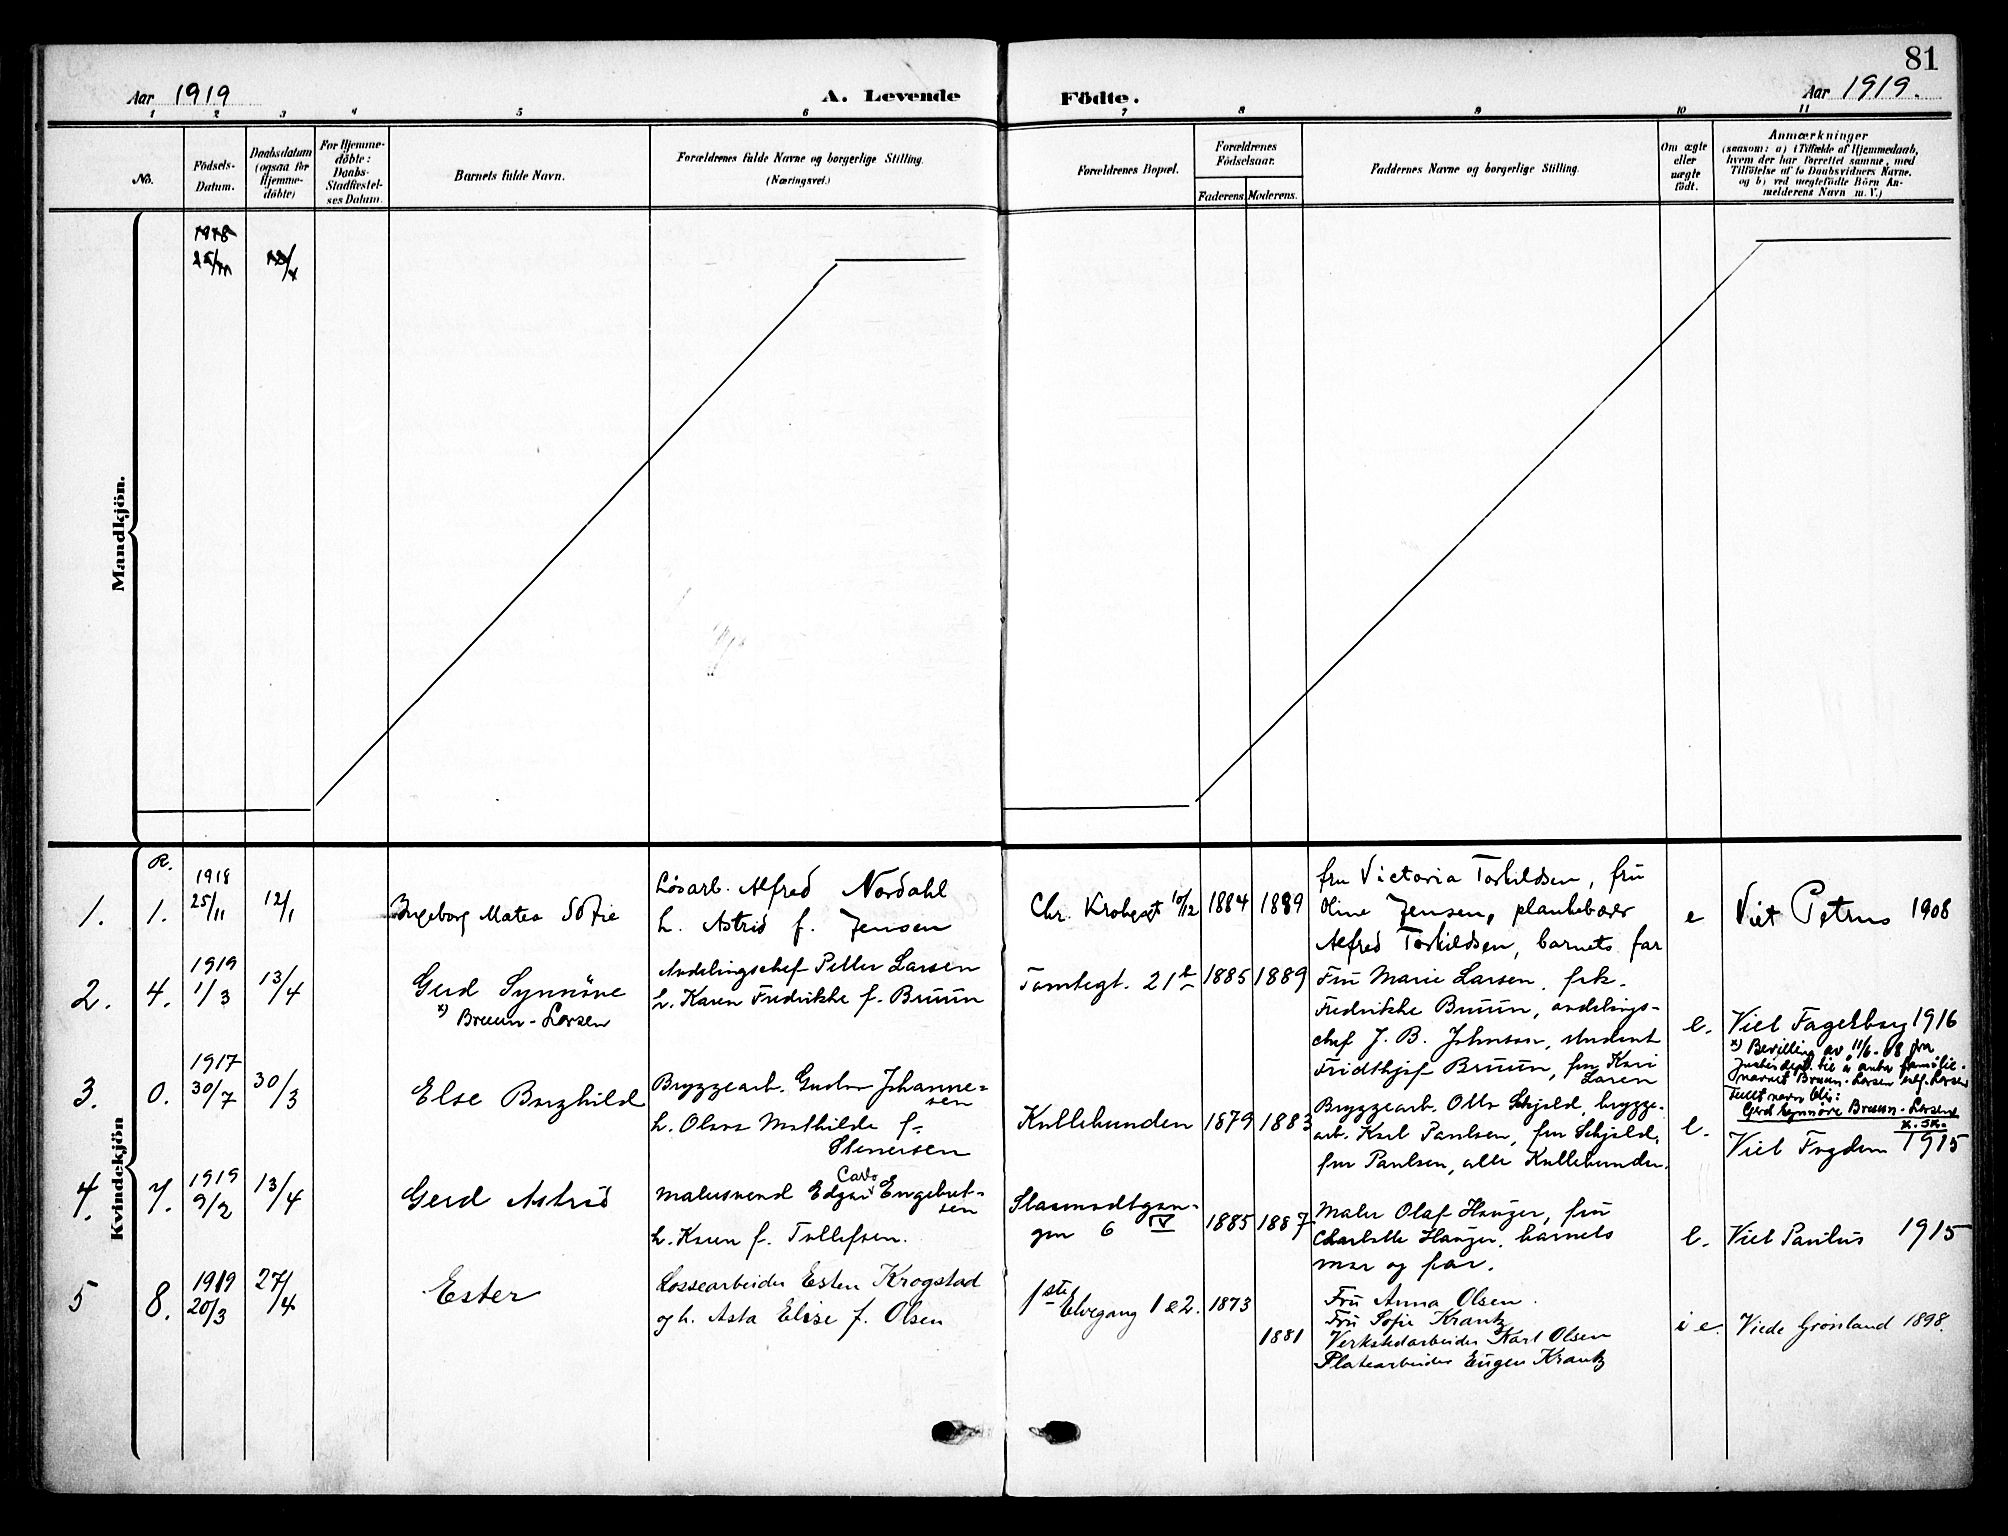 81
Aar 1919
A. Levende
Födte.
Aar 1919.
1 2 3 4 5 6 7 8 9 10 11
No.
Födsels-
Datum.
Daabsdatum
(ogsaa for
Hjemme-
döbte)
For Hjemme-
döbte:
Daabs-
Stadfæstel-
ses Datum.
Barnets fulde Navn.
Forældrenes fulde Navne og borgerlige Stilling.
(Næringsvei.)
Forældrenes Bopæl.
Forældrenes
Födselsaar.
Faderens. Moderens.
Faddernes Navne og borgerlige Stilling.
Om ægte
eller
uægte
födt.
Anmærkninger
(saasom: a) i Tilfælde af Hjemmedaab,
hvem der har forrettet samme, med
Tilföielse af to Daabsvidners Navne.
og b) ved uægtefödte Börn An-
melderens Navn m. V.)
Mandkjön.
1918
25/11
Kvindekjön
R.
1. 1.
1918
25/11
12/1
Ingeborg Matea Sofie
Lösarb. Alfred Nordahl
h. Astrid f. Jensen
Chr. Krohgsgt 10/12
1884 1889
fru Victoria Torkildsen, fru
Oline Jensen, plankebærer
Alfred Torkildsen, barnets far
e
Viet Petrus 1908
2. 4.
1919
1/3
13/4
Gerd Synnöve
x) Bruun-Larsen
Avdelingschef Petter Larsen
h. Karen Fredrikke f. Bruun
Tomtegt. 21 b
1885 1889
Fru Marie Larsen, frk.
Fredrikke Bruun, avdelings-
chef J. B. Johnson, student
Fridthjof Bruun, fru Kari
Larsen
e.
Viet Fagerborg 1916
x) Bevilling av 11/6-08 fra
Justisdept. til å anta familie-
navnet Bruun-Larsen istf. Larsen
Fullt navn blir:
Gerd Synnöve Bruun-Larsen
3. 0.
1917
30/7
30/3
Else Borghild
Bryggearb. Gustav Johanne-
sen
h. Olava Mathilde f.
Stenersen
Kullebunden
1879 1883
Bryggearb. Otto Schjold, brygge-
arb. Karl Paulsen, fru Schjold,
fru Paulsen, alle Kullebunden.
e.
Viet 1915
4. 7.
1919
9/2
13/4
Gerd Astrid
Malersvend Edgar Engebret-
sen
h. Karen f. Tollefsen.
gen 6 IV
1885 1887
Maler Olaf Hauger, fru
Charlotte Hauger, barnets
mor og far.
e.
Viet Paulus 1915
5 8.
1919
20/3
27/4
Ester
Lossearbeider Esten Krogstad
og h. Asta Elise f. Olsen
1ste Elvegang 1 & 2.
1873
1881
Fru Anna Olsen.
Fru Sofie Krantz
Verkstedarbeider Karl Olsen
Platearbeider Eugen Krantz
i e.
Viede Grönland 1898.